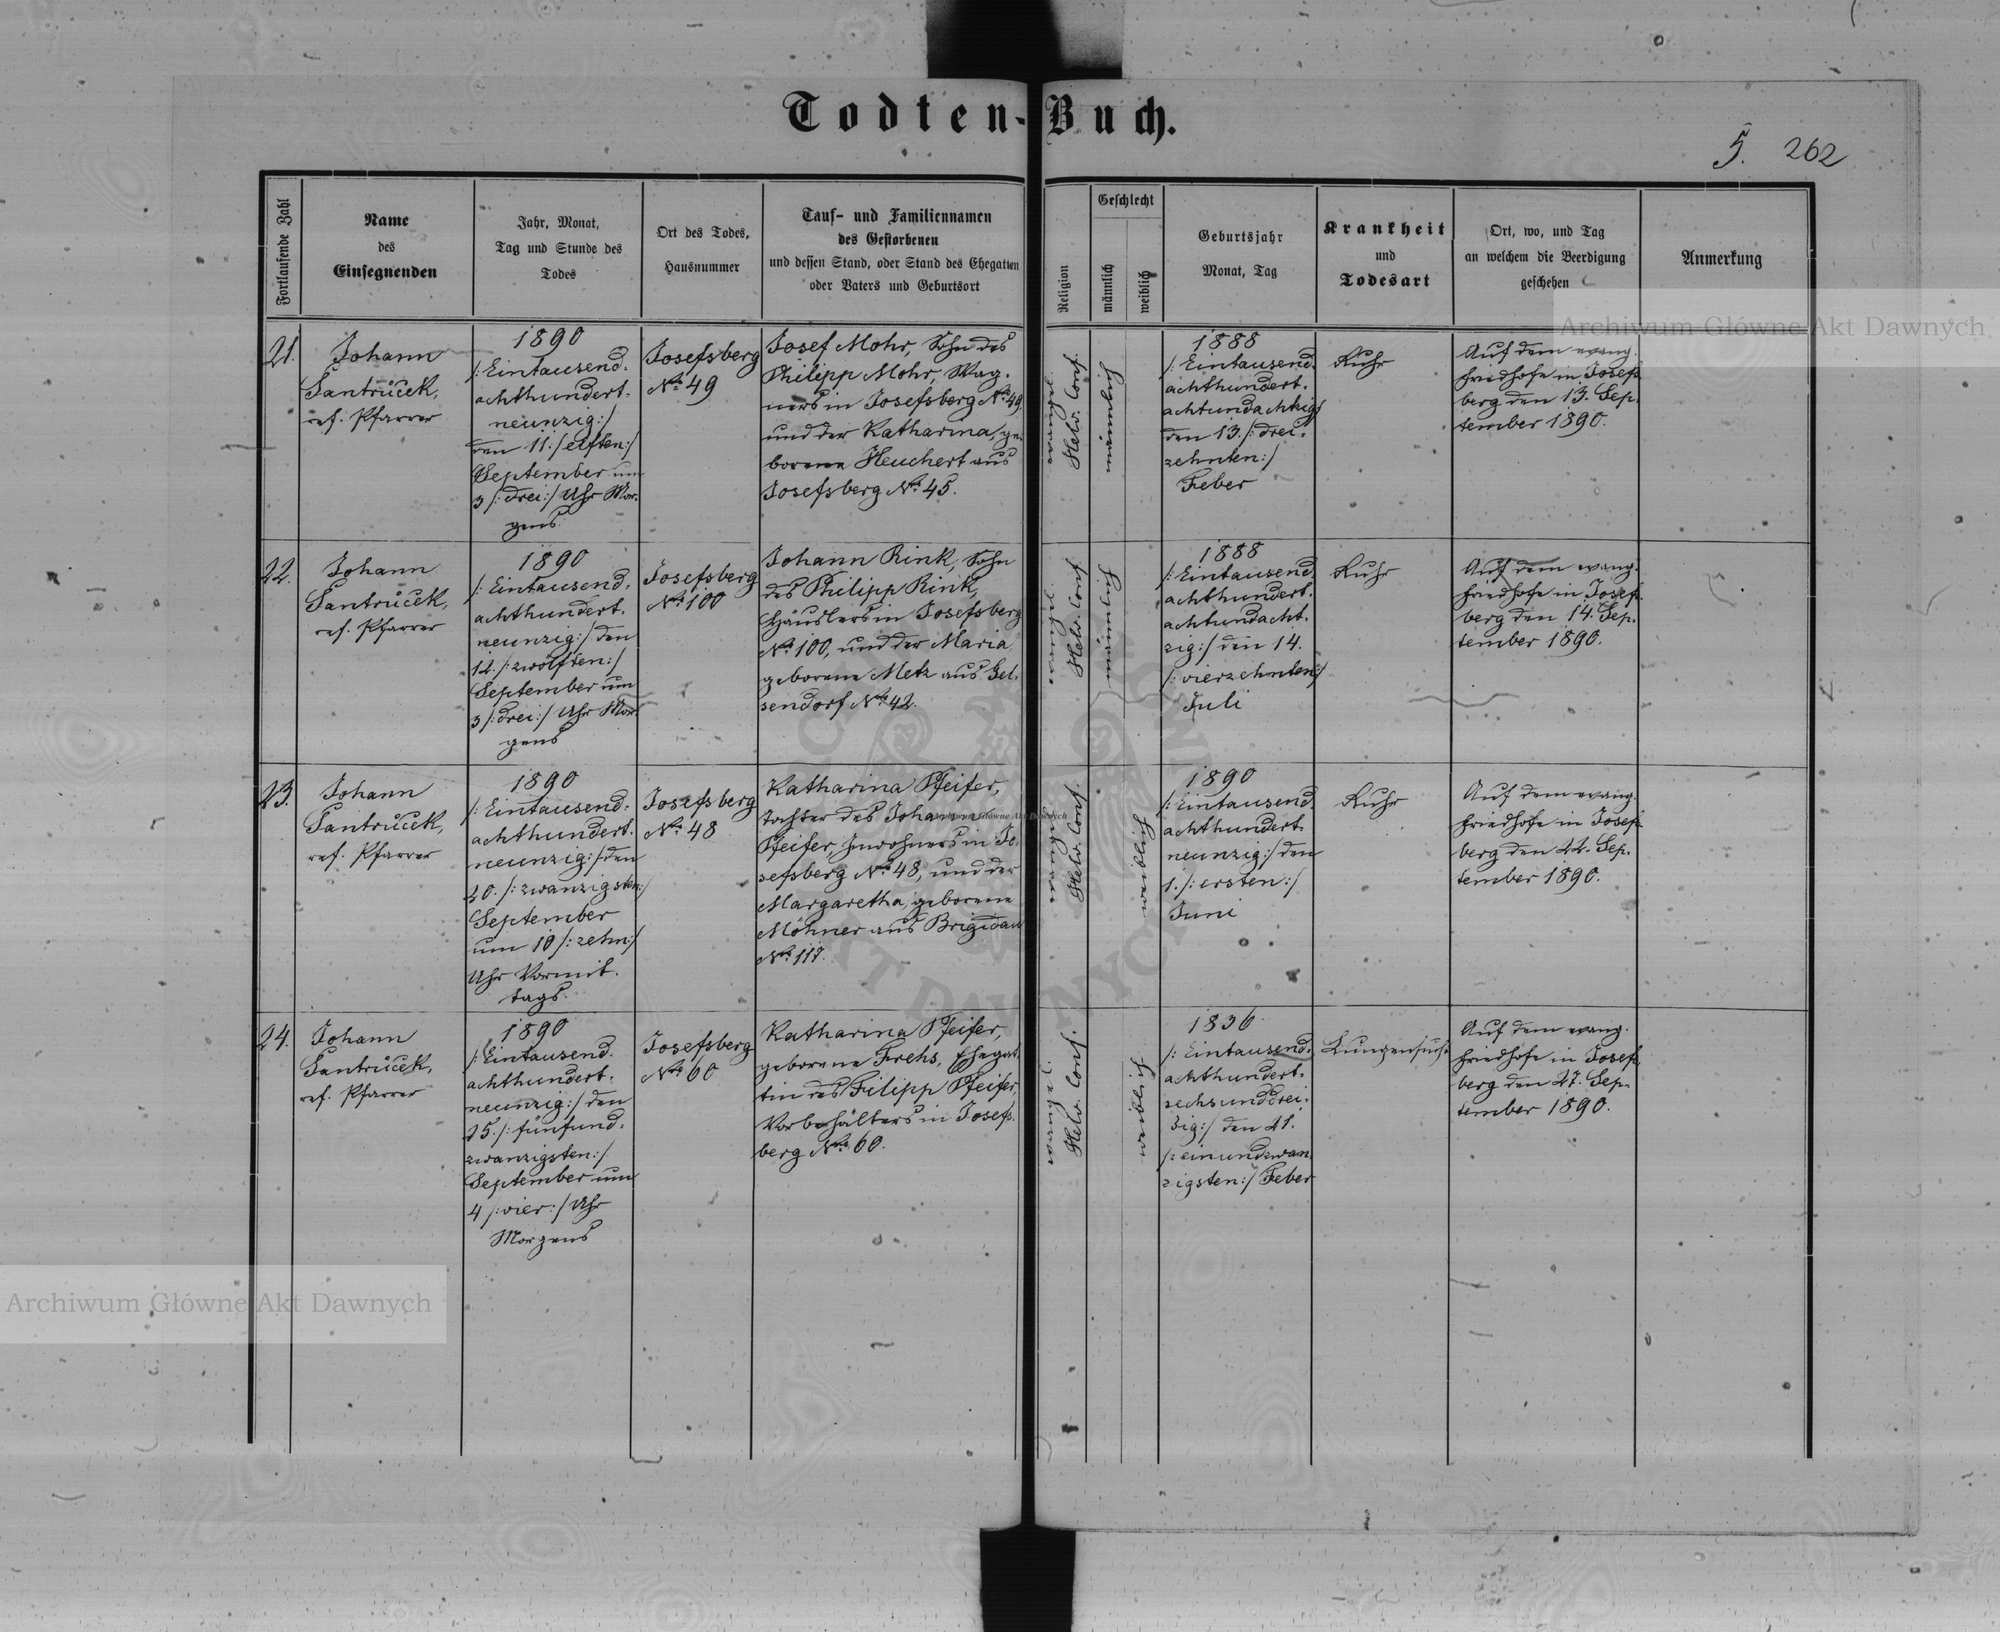 Todten-Buch.
5. 262
Fortlaufende Zahl
Name
des
Einsegnenden
Jahr, Monat,
Tag und Stunde des
Todes
Ort des Todes,
Hausnummer
Tauf- und Familiennamen
des Gestorbenen
und dessen Stand, oder Stand des Ehegatten
oder Vaters und Geburtsort
Religion
Geschlecht
männlich
weiblich
Geburtsjahr
Monat, Tag
Krankheit
und
Todesart
Ort, wo, und Tag
an welchem die Beerdigung
geschehen
Anmerkung
21.
Johann
Santrůček,
ref. Pfarrer
1890
/:Eintausend-
achthundert-
neunzig:/
den 11./:elften:/
September um
3 /:drei:/ Uhr Mor-
gens
Josefsberg
No 49
Josef Mohr, Sohn des
Philipp Mohr, Wag-
ners in Josefsberg No 49
und der Katharina, ge-
borene Heuchert aus
Josefsberg No 45.
Helv. Conf.
männlich
1888
/:Eintausend-
achthundert-
achtundachtzig:/
den 13./:drei-
zehnten:/
Feber
Ruhr
Auf dem evang.
Friedhofe in Josefs-
berg den 13. Sep-
tember 1890.
22.
Johann
Santrůček,
ref. Pfarrer
1890
/:Eintausend-
achthundert-
neunzig:/ den
12./:zwölften:/
September um
3 /:drei:/ Uhr Mor-
gens
Josefsberg
No 100
Johann Rink, Sohn
des Philipp Rink,
Häuslers in Josefsberg
No 100, und der Maria,
geborene Metz aus Gel-
sendorf No 42.
Helv. Conf.
männlich
1888
/:Eintausend-
achthundert-
achtundacht-
zig:/ den 14.
/:vierzehnten:/
Juli
Ruhr
Auf dem evang.
Friedhofe in Josefs-
berg den 14. Sep-
tember 1890.
23.
Johann
Santrůček,
ref. Pfarrer
1890
/:Eintausend-
achthundert-
neunzig:/ den
20./:zwanzigsten:/
September
um 10 /:zehn:/
Uhr Vormit-
tags.
Josefsberg
No 48
Katharina Pfeifer,
Tochter des Johann
Pfeifer, Inwohners in Jo-
sefsberg No 48, und der
Margaretha, geborene
Möhner aus Brigidau
No 117.
Helv. Conf.
weiblich
1890
/:Eintausend-
achthundert-
neunzig:/ den
1./:ersten:/
Juni
Ruhr
Auf dem evang.
Friedhofe in Josefs-
berg den 22. Sep-
tember 1890.
24.
Johann
Santrůček,
ref. Pfarrer
1890
/:Eintausend-
achthundert-
neunzig:/ den
25./:fünfund-
zwanzigsten:/
September um
4 /:vier:/ Uhr
Morgens
Josefsberg
No 60
Katharina Pfeifer,
geborene Frehs, Ehegat-
tin des Filipp Pfeifer,
Vorbehälters in Josefs-
berg No 60.
Helv. Conf.
weiblich
1836
/:Eintausend-
achthundert-
sechsunddrei-
ßig:/ den 21.
/:einundzwan-
zigsten:/ Feber
Lungensucht
Auf dem evang.
Friedhofe in Josefs-
berg den 27. Sep-
tember 1890.
Archiwum Główne Akt Dawnych
Archiwum Główne Akt Dawnych
Archiwum Główne Akt Dawnych